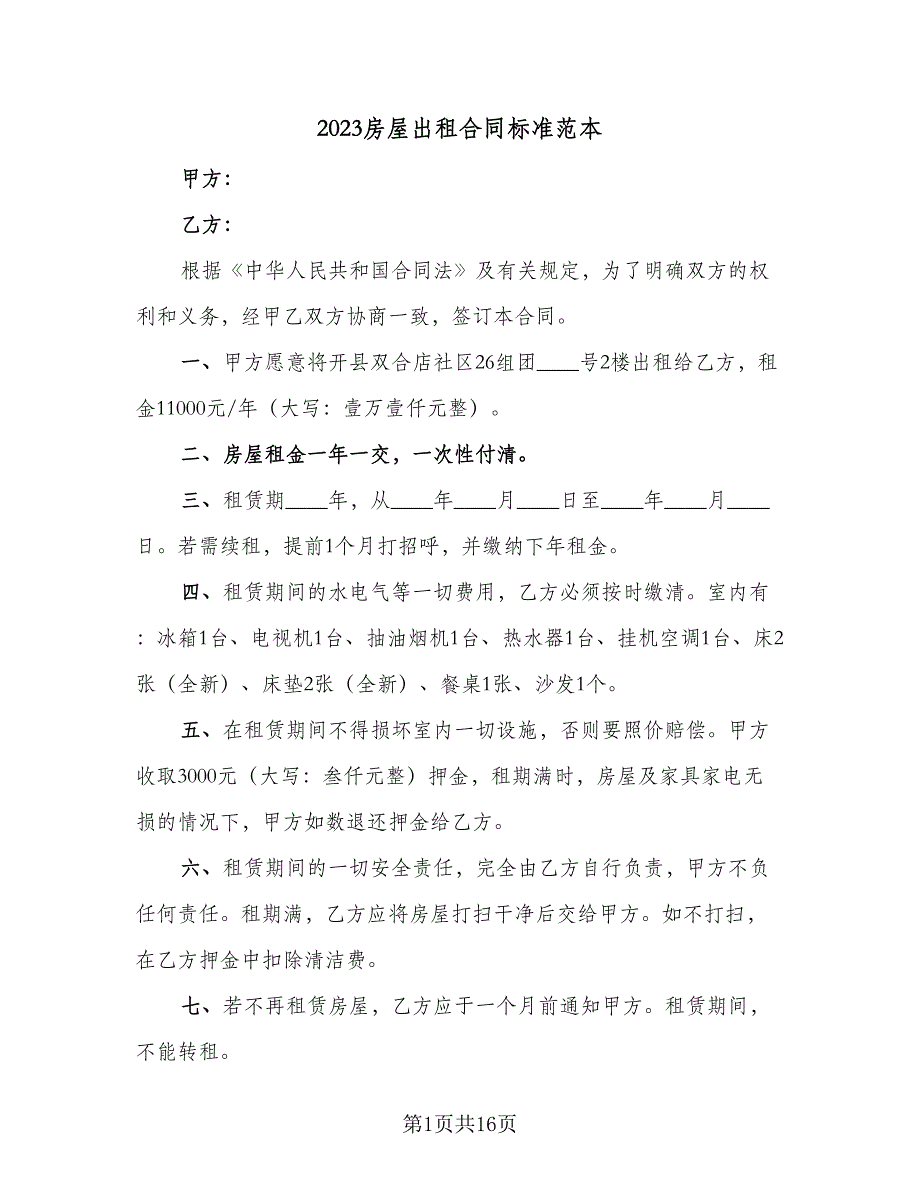 2023房屋出租合同标准范本
甲方：
乙方：
根据《中华人民共和国合同法》及有关规定，为了明确双方的权
利和义务，经甲乙双方协商一致，签订本合同。
一、甲方愿意将开县双合店社区26组团____号2楼出租给乙方，租
金11000元/年（大写：壹万壹仟元整）。
二、房屋租金一年一交，一次性付清。
三、租赁期____年，从____年____月____日至____年____月____
日。若需续租，提前1个月打招呼，并缴纳下年租金。
四、租赁期间的水电气等一切费用，乙方必须按时缴清。室内有
：冰箱1台、电视机1台、抽油烟机1台、热水器1台、挂机空调1台、床2
张（全新）、床垫2张（全新）、餐桌1张、沙发1个。
五、在租赁期间不得损坏室内一切设施，否则要照价赔偿。甲方
收取3000元（大写：叁仟元整）押金，租期满时，房屋及家具家电无
损的情况下，甲方如数退还押金给乙方。
六、租赁期间的一切安全责任，完全由乙方自行负责，甲方不负
任何责任。租期满，乙方应将房屋打扫干净后交给甲方。如不打扫，
在乙方押金中扣除清洁费。
七、若不再租赁房屋，乙方应于一个月前通知甲方。租赁期间，
不能转租。
第1页共16页